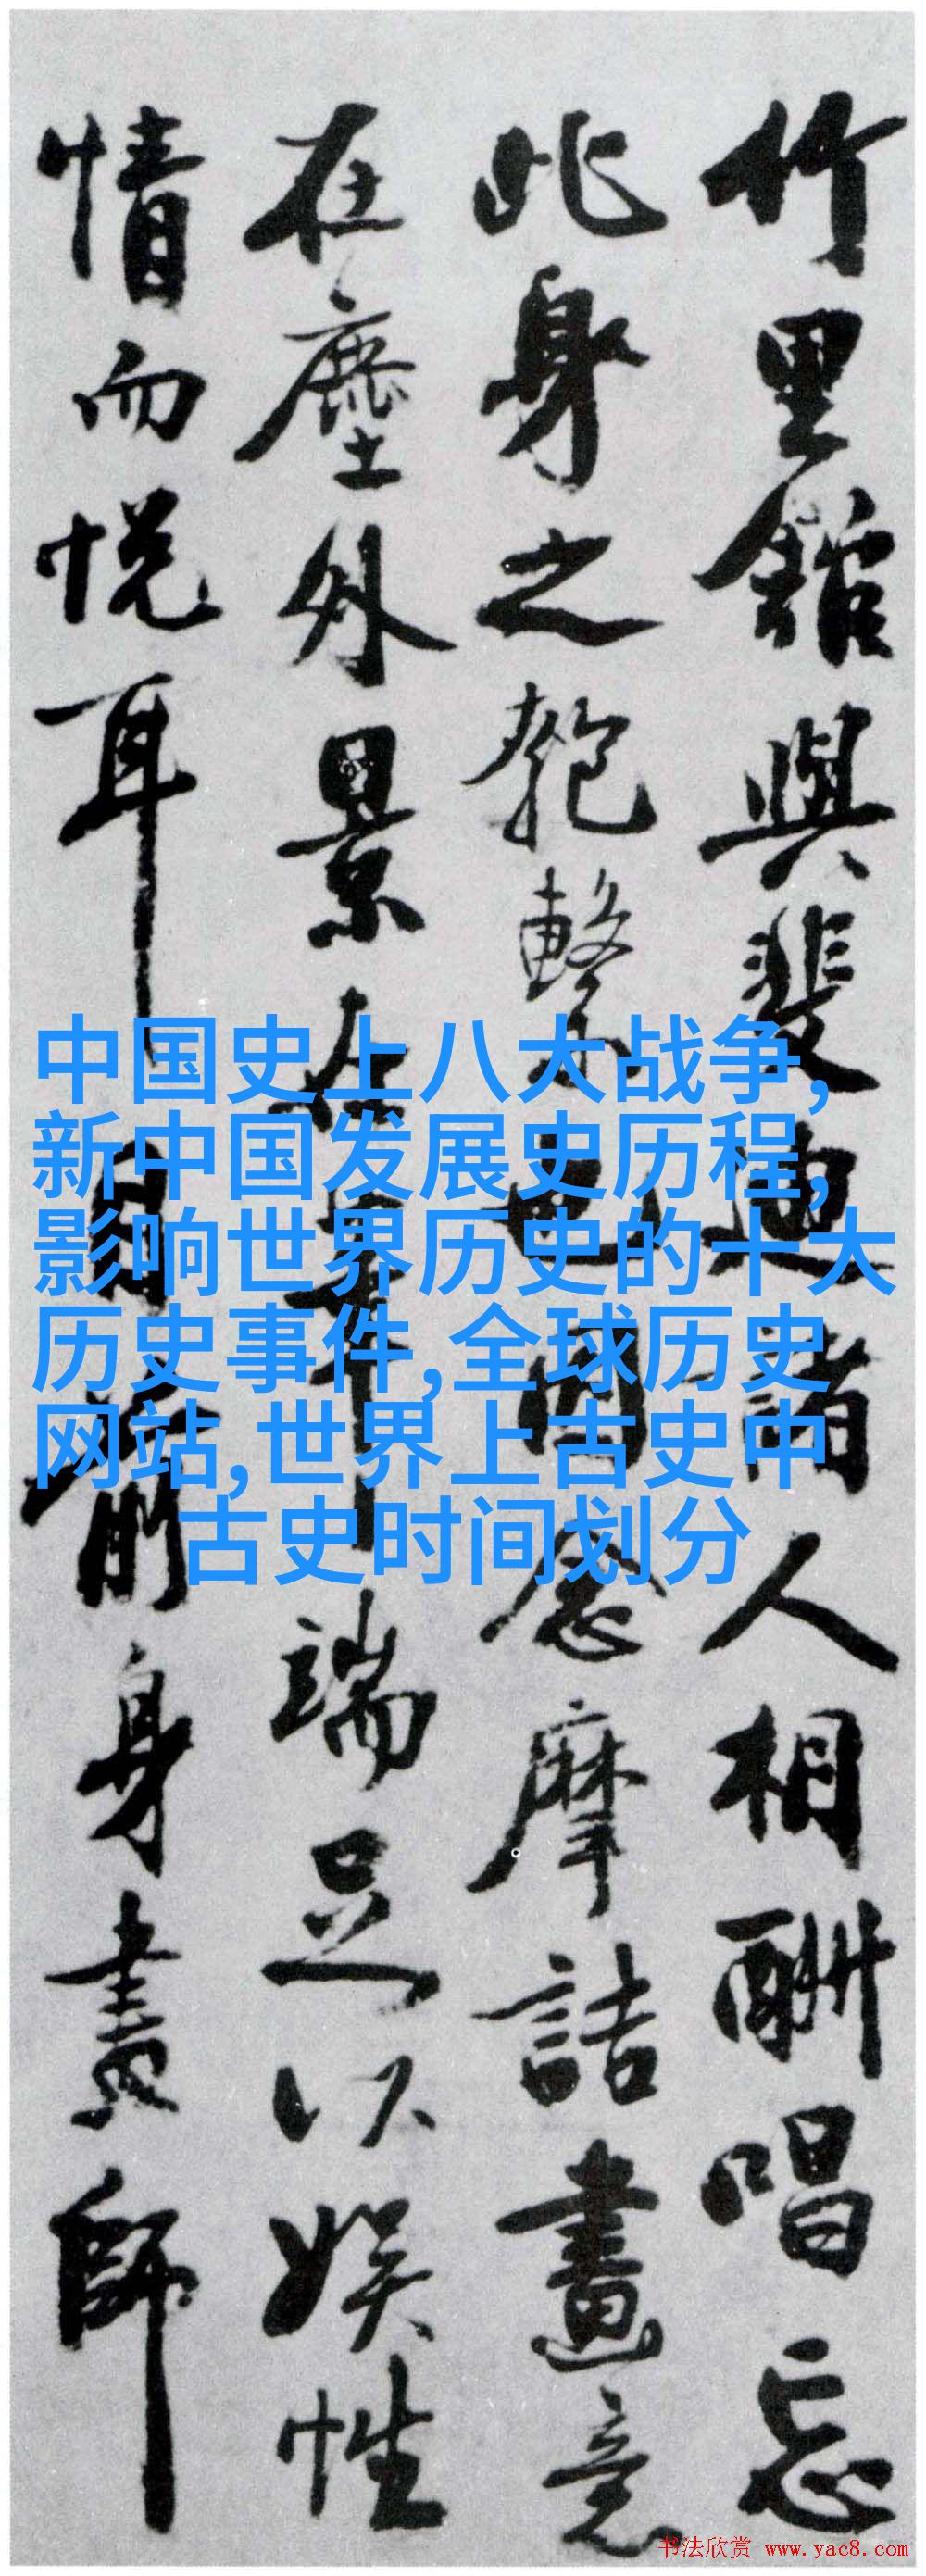 竹里館與裴迪諸人相酬唱忘
此身之匏繫也因念摩詰畫意
在塵外景在筆端足以娛性
情而悅耳目前身畫師
中国史上八大战争,
新中国发展史历程,
影响世界历史的十大
历史事件,全球历史
网站,世界上古史中
古史时间划分
书法欣赏 www.yac8.com